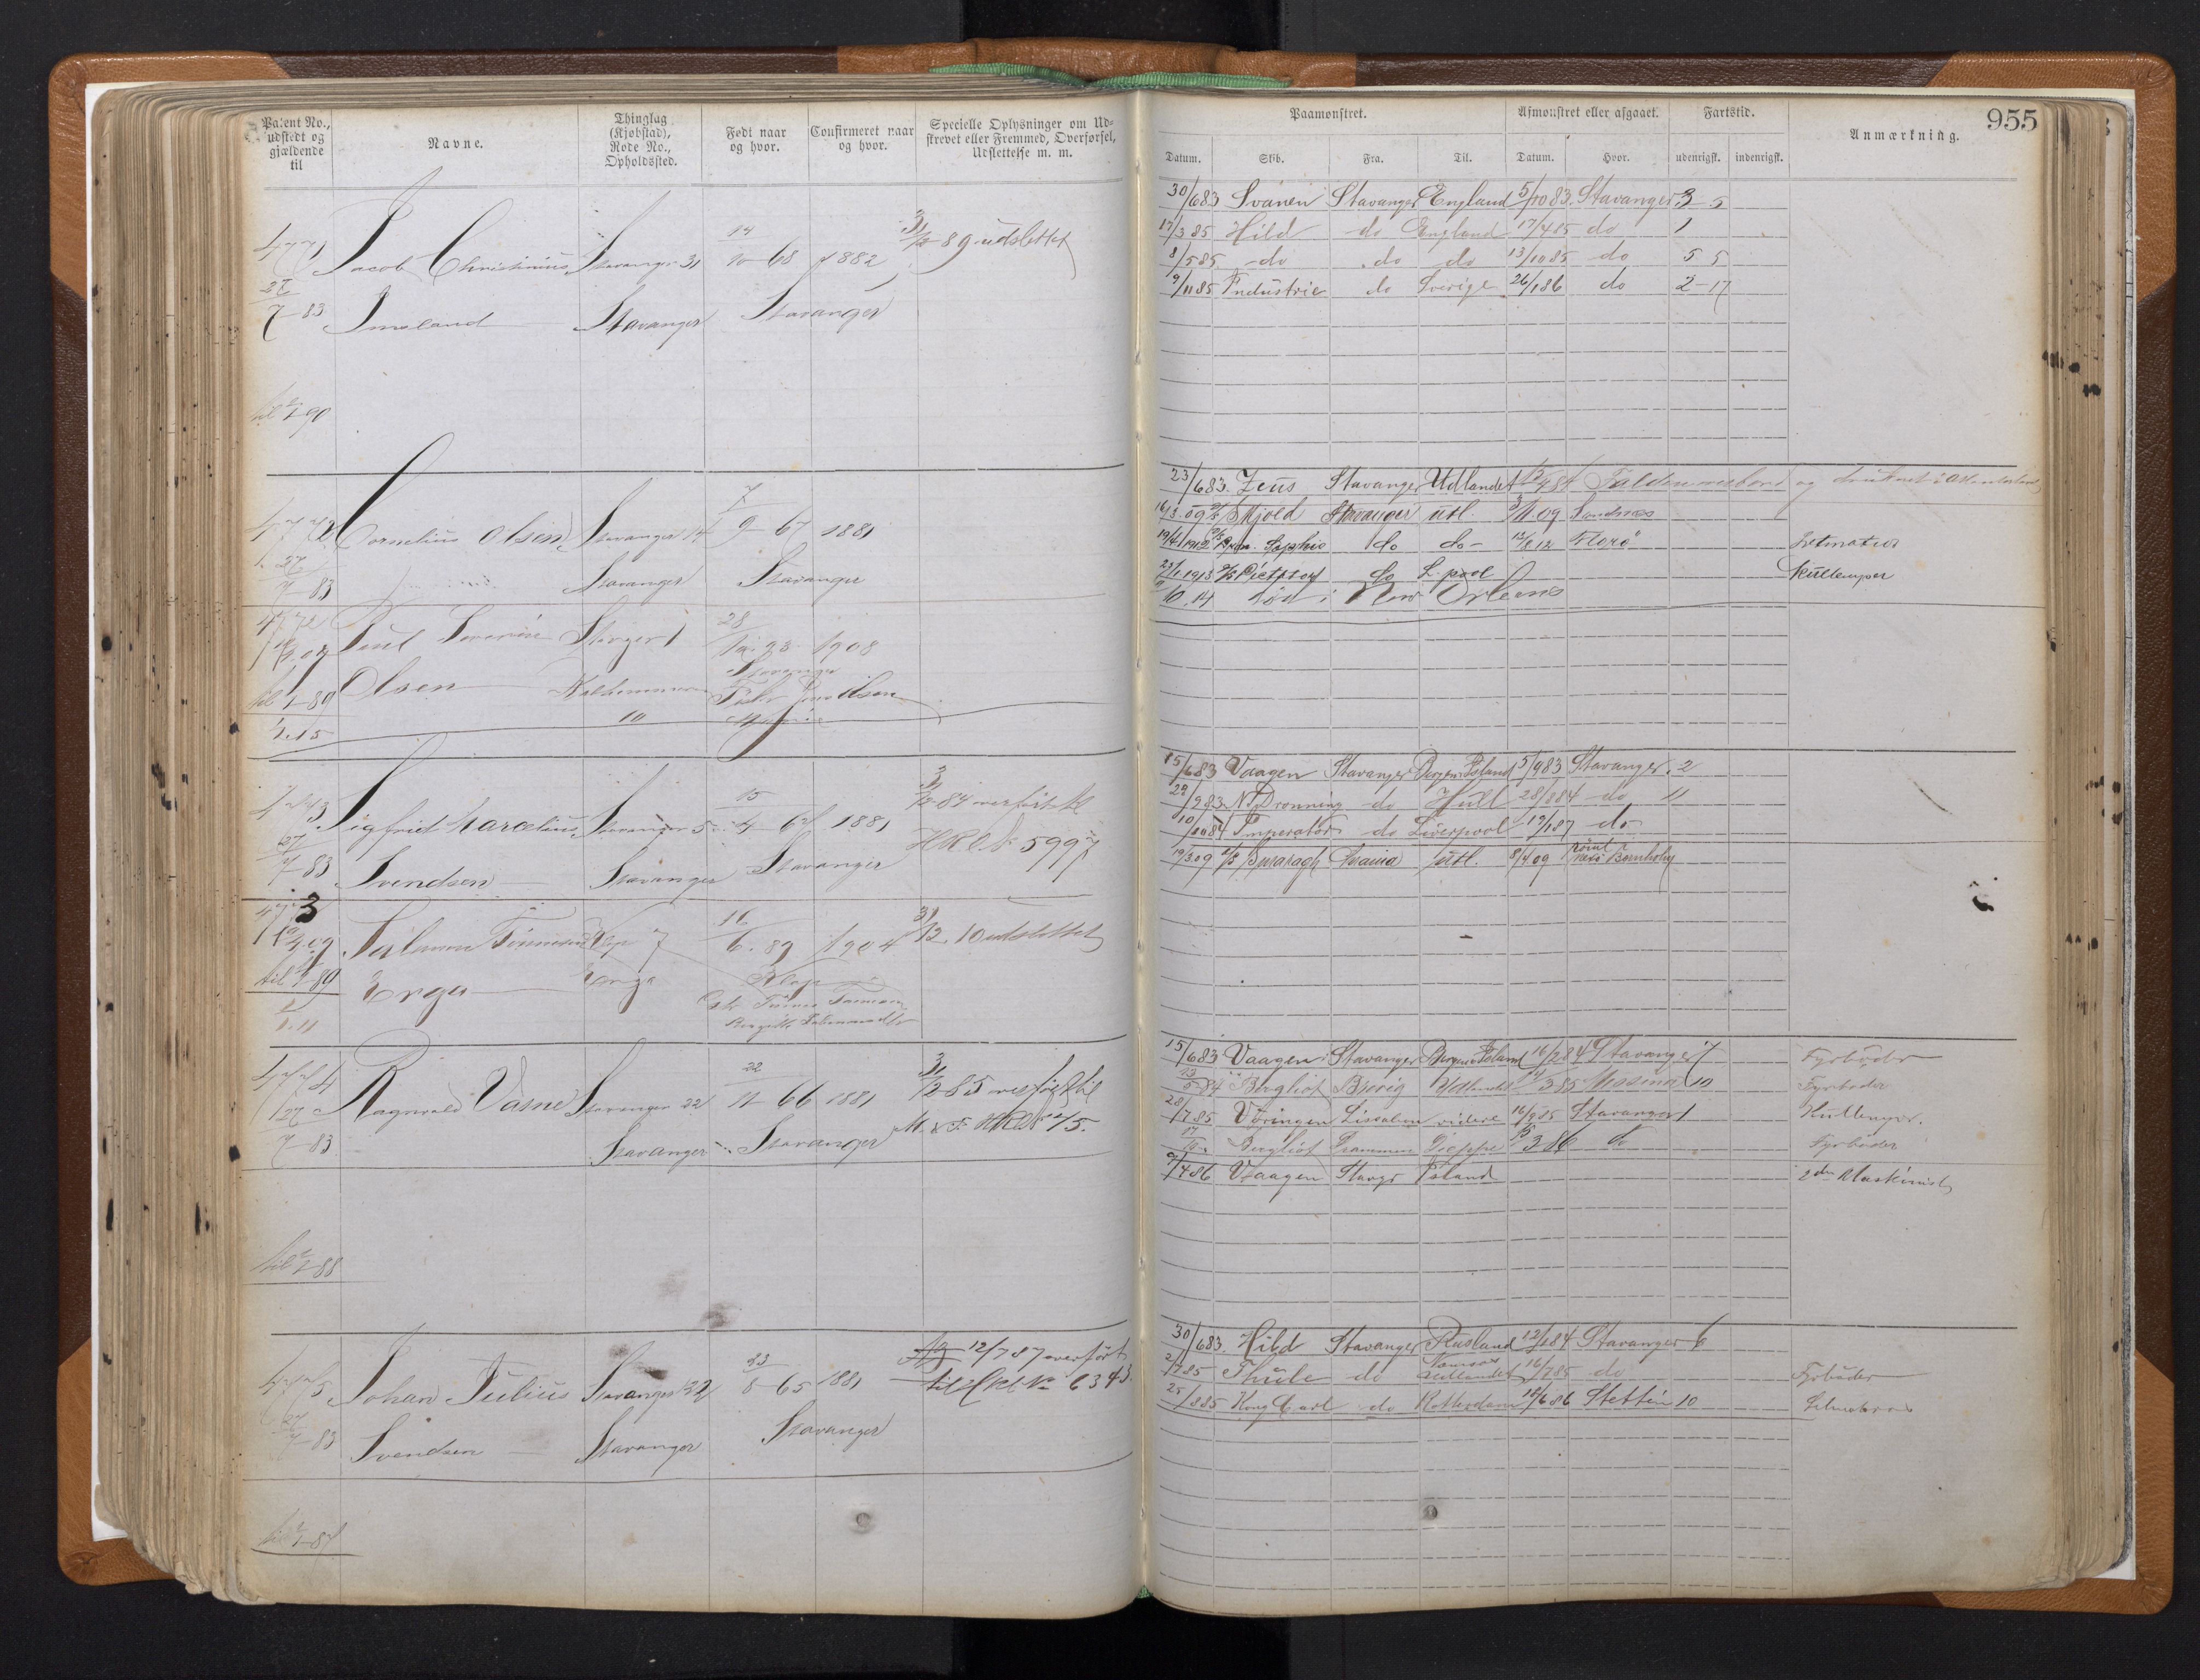 Patent No., udstedt og gjældende til
Navne.
Thinglag (Kjøbstad), Rode No., Opholdssted.
Født naar og hvor.
Confirmeret naar og hvor.
Specielle Oplysninger om Udskrevet eller Fremmed, Overførsel, Udslettelse m. m.
4771 Jacob Christinius Stavanger 31 14/10 68 1882 31/12 89 udslettet
27/7-83 Imsland Stavanger Stavanger
til 1/1-90
4772 Cornelius Olsen Stavanger 14 7/9-67 1881
27/7-83 Stavanger Stavanger
4772 Severin Olsen Stavger 1 28 1908
Stavanger
10
1/1.15
4773 Sigfried Marcelius Stavanger 5 15/4-67 1881 31/12-84 overført til
27/7-83 Svendsen Stavanger Stavanger HRL No 5997
3
Salamon Tønnesen Klep 7 16/6.89 1904 31/12.10 udslettet
til 1/1-89 Erga Erga Klep
1/1.11
4774 Ragnvald Vasnes Stavanger 22 22/11-66 1881 31/12 85 overført til
27/7-83 Stavanger Stavanger M. & F. HRL No 15.
til 1/1-88
4775 Johan Julius Stavanger 22 23/8-65 1881 12/7 87 overført
27/7-83 Svendsen Stavanger Stavanger til HRL No 6343
til 1/1-87
955
Paamonstret.
Afmonstret eller afgaaet.
Fartstid.
Anmærkning.
Datum. Skib. Fra. Til. Datum. Hvor. udenrigsk. indenrigsk.
30/6 83 Svanen Stavanger England 5/10 83. Stavanger 3 5
17/3 85 Hild do England 17/4 85 do 1
8/5 85 do do do 13/10 85 do 5 5
9/11 85 Industrie do Sverige 26/1 86 do 2-17
23/6 83. Zeus Stavanger Udlandet Falden overbord og druknet
16/3.09 Skjold Stavanger utl. 3/11.09 Sandnæs
19/4 1912 Sophie do do- 12/8 12 Florø
23/1 1913 do L.pool Kullemper
10.14 død i New Orleans
15/6 83 Vaagen Stavanger Bergen Island 5/9 83 Stavanger. 2
29/9 83 N. Dronning do Hull 28/8 84 do 11
10/10 84 Imperator do Liverpool 19/1 87 do
19/3.09 utl. 8/4 09 Bornholm
15/6 83 Vaagen Stavanger Bergen Island 16/2 84 Stavanger 7 Fyrbøder
13/5-84 Bergliot Brevig Udlandet 3 85 Messina 10 Fyrbøder
28/7 85 Vøringen Lissabon videre 16/9 85 Stavanger 1 Kullemper.
17 Bergliot Drammen Dieppe 3 86 do Fyrbøder
9/4 86 Vaagen Stavgr Island 2den Maskinist
30/6 83. Hild Stavanger Rusland 12/1 84 Stavanger 6
2/7 85 Thule do Udlandet 16/7 85 do Fyrbøder
25/8 85 Kong Carl do Rotterdam 18/6 86 Stettin 10